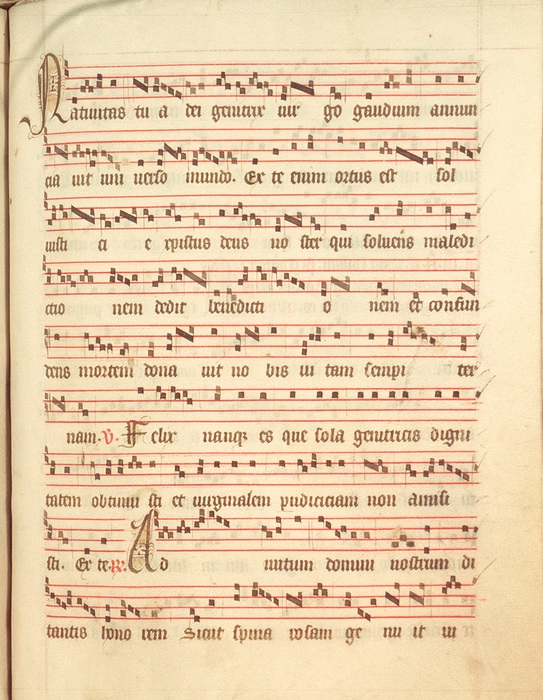 Nativitas tu a dei genitrix vir go gaudium annun
cia vit uni verso mundo. Ex te enim ortus est sol
iusti ci e xpistus deus no ster qui solvens maledi
ctio nem dedit benedicti o nem et confun
dens mortem dona vit no bis vi tam sempi ter
nam. V. Felix namq es que sola genitricis digni
tatem obtinui sti et virginalem pudiciciam non amisi
sti. Ex te. R. Ad nutum domini nostrum di
tantis hono rem Sicut spina rosam ge nu it iu